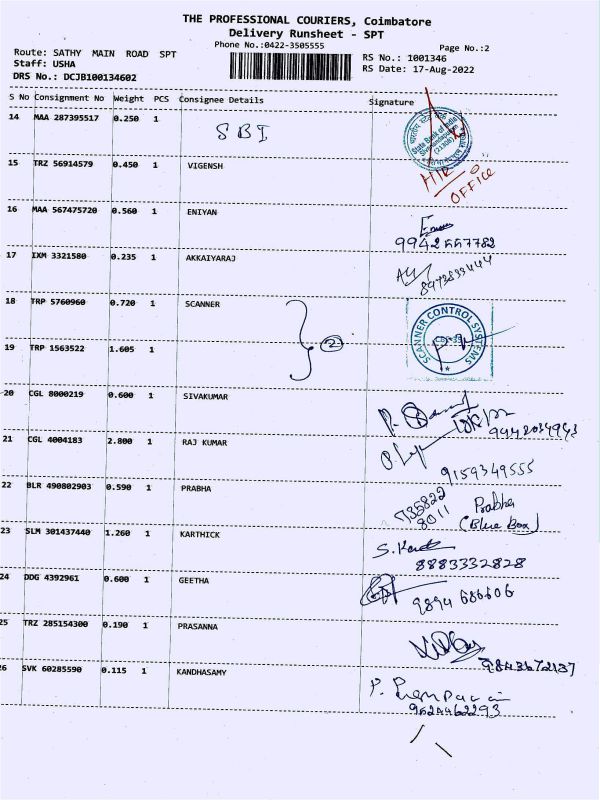 THE PROFESSIONAL COURIERS, Coimbatore
Delivery Runsheet - SPT
Phone No.:0422-3505555
Page No.:2
Route: SATHY MAIN ROAD SPT
RS No.: 1001346
Staff: USHA
RS Date: 17-Aug-2022
DRS No.: DCJB100134602
S No Consignment No Weight PCS Consignee Details Signature
14 MAA 287395517 0.250 1 SBI
State Bank of India
HIR OFFICE
15 TRZ 56914579 0.450 1 VIGENSH
16 MAA 567475720 0.560 1 ENIYAN
9942557782
17 IXM 3321580 0.235 1 AKKAIYARAJ
18 TRP 5760960 0.720 1 SCANNER
SCANNER CONTROL SYSTEMS
2
19 TRP 1563522 1.605 1
20 CGL 8000219 0.600 1 SIVAKUMAR
9442034943
21 CGL 4004183 2.800 1 RAJ KUMAR
9159349555
22 BLR 490802903 0.590 1 PRABHA
735822 8011 Prabha
(Blue Box)
23 SLM 301437440 1.260 1 KARTHICK
8883332828
24 DDG 4392961 0.600 1 GEETHA
9894 686606
25 TRZ 285154300 0.190 1 PRASANNA
9843672137
26 SVK 60285590 0.115 1 KANDHASAMY